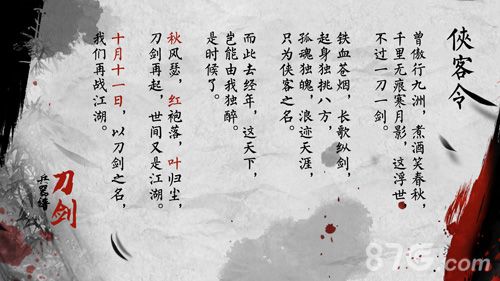 侠客令
曾傲行九洲，煮酒笑春秋，
千里无痕寒月影，这浮世
不过一刀一剑。
铁血苍烟，长歌纵剑，
起身独挑八方，
孤魂独魄，浪迹天涯，
只为侠客之名。
而此去经年，这天下，
岂能由我独醉。
是时候了。
秋风瑟，红袍落，叶归尘，
刀剑再起，世间又是江湖。
十月十一日，以刀剑之名，
我们再战江湖。
刀剑
兵器谱
87G.com